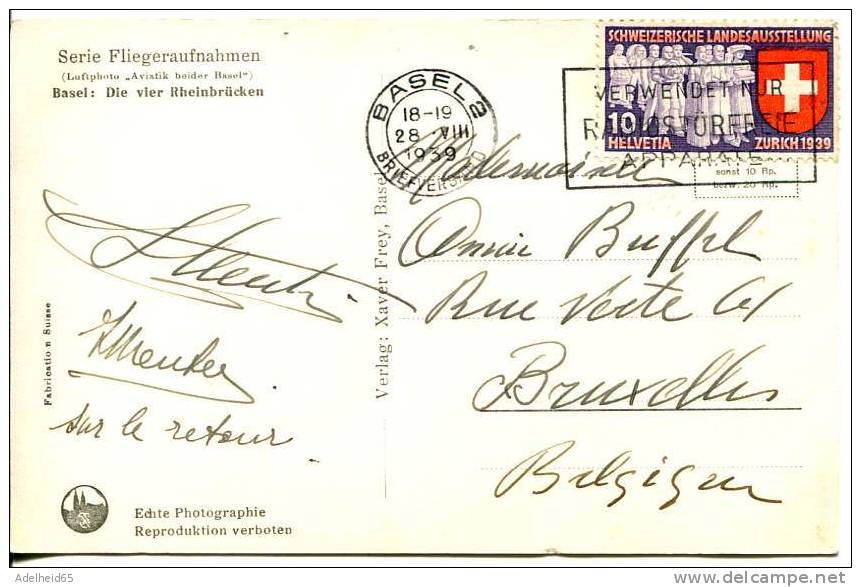 Serie Fliegeraufnahmen
(Luftphoto „Aviatik beider Basel")
Basel: Die vier Rheinbrücken
BASEL 2
18-19
28 VIII
1939
BRIEFVERSAND
SCHWEIZERISCHE LANDESAUSSTELLUNG
10
HELVETIA ZURICH 1939
VERWENDET NUR
RADIOSTÖRFREIE
APPARATE
sonst 10 Rp.
bezw. 20 Rp.
Mademoiselle
Annie Buffel
Rue Verte 61
Bruxelles
Belgien
sur le retour
Verlag: Xaver Frey, Basel
Fabrication Suisse
Echte Photographie
Reproduktion verboten
Adelheid65
www.delcampe.net